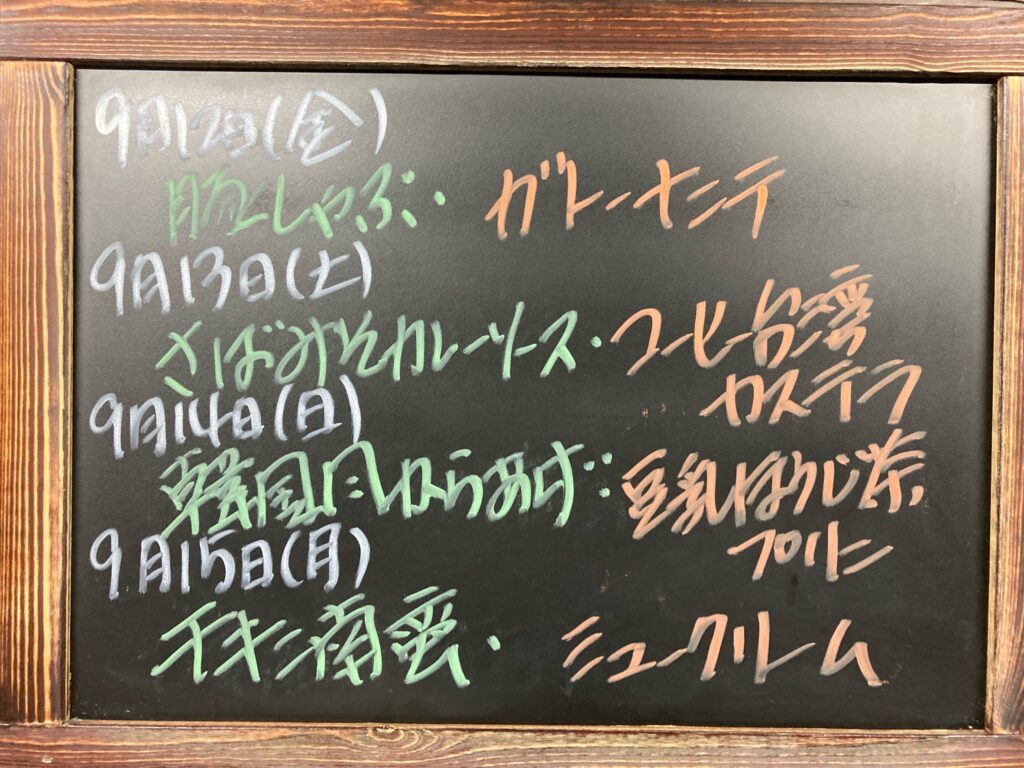 9月12日(金)
豚しゃぶ・ ガトーナンテ
9月13日(土)
さばみそカレーソース・コーヒー台湾
カステラ
9月14日(日)
韓国風にらからあげ・豆乳ほうじ茶
プリン
9月15日(月)
チキン南蛮・ ミュークリーム